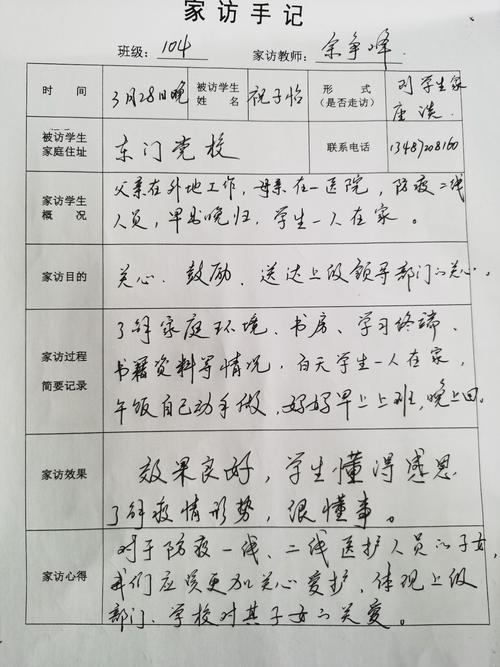 家访手记
班级： 104 家访教师： 余争峰
时 间 3月28日晚 被访学生姓名 祝子怡 形 式（是否走访） 到学生家座谈.
被访学生家庭住址 东门党校 联系电话 13487208160
家访学生概况 父亲在外地工作，母亲在一医院，防疫二线
人员，早出晚归，学生一人在家。
家访目的 关心、鼓励、送达上级领导部门的关心。
家访过程简要记录 了解家庭环境、书房、学习终端、
书籍资料等情况，白天学生一人在家，
午饭自己动手做，妈妈早上上班，晚上回。
家访效果 效果良好，学生懂得感恩
了解疫情形势，很懂事。
家访心得 对于防疫一线、二线医护人员的子女，
我们应该更加关心爱护，体现上级
部门、学校对其子女的关爱。